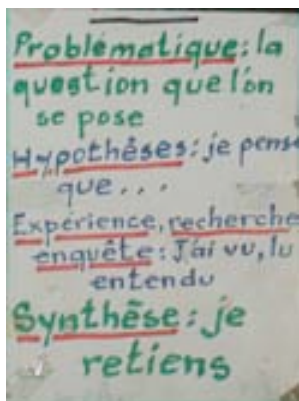 Problématique: la
question que l'on
se pose
Hypothèses: je pense
que...
Expérience, recherche
enquête: J'ai vu, lu
entendu
Synthèse: je
retiens